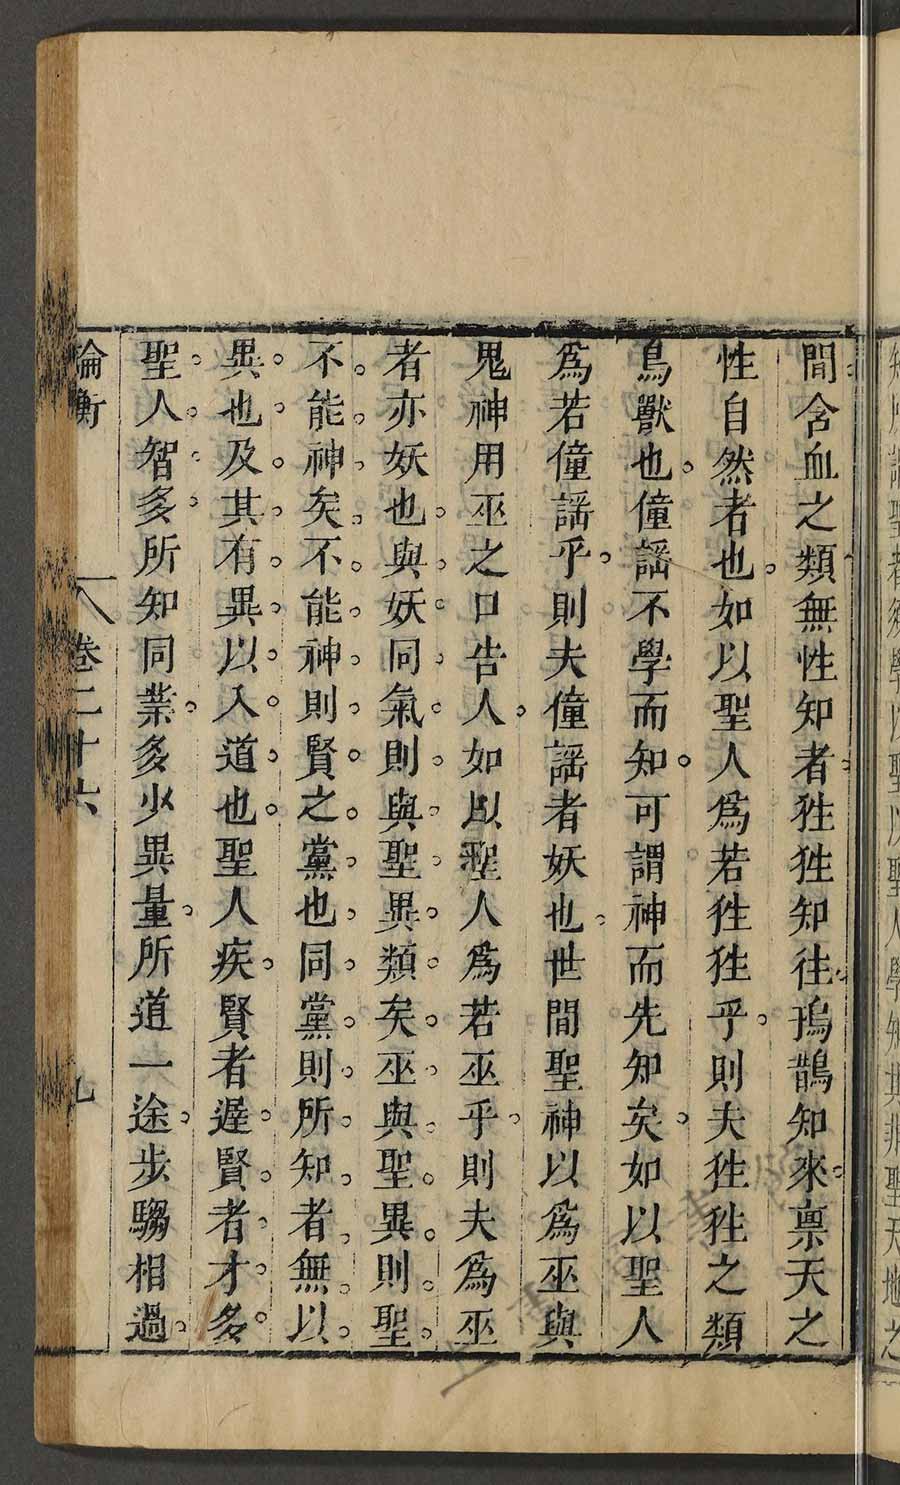 間含血之類無性知者狌狌知往鳱鵲知來稟天之
性自然者也如以聖人爲若狌狌乎則夫狌狌之類
鳥獸也僮謡不學而知可謂神而先知矣如以聖人
爲若僮謡乎則夫僮謡者妖也世間聖神以爲巫與
鬼神用巫之口告人如以聖人爲若巫乎則夫爲巫
者亦妖也與妖同氣則與聖異類矣巫與聖異則聖
不能神矣不能神則賢之黨也同黨則所知者無以
異也及其有異以入道也聖人疾賢者遲賢者才多
聖人智多所知同業多少異量所道一途步騶相過
論衡 卷二十六 九